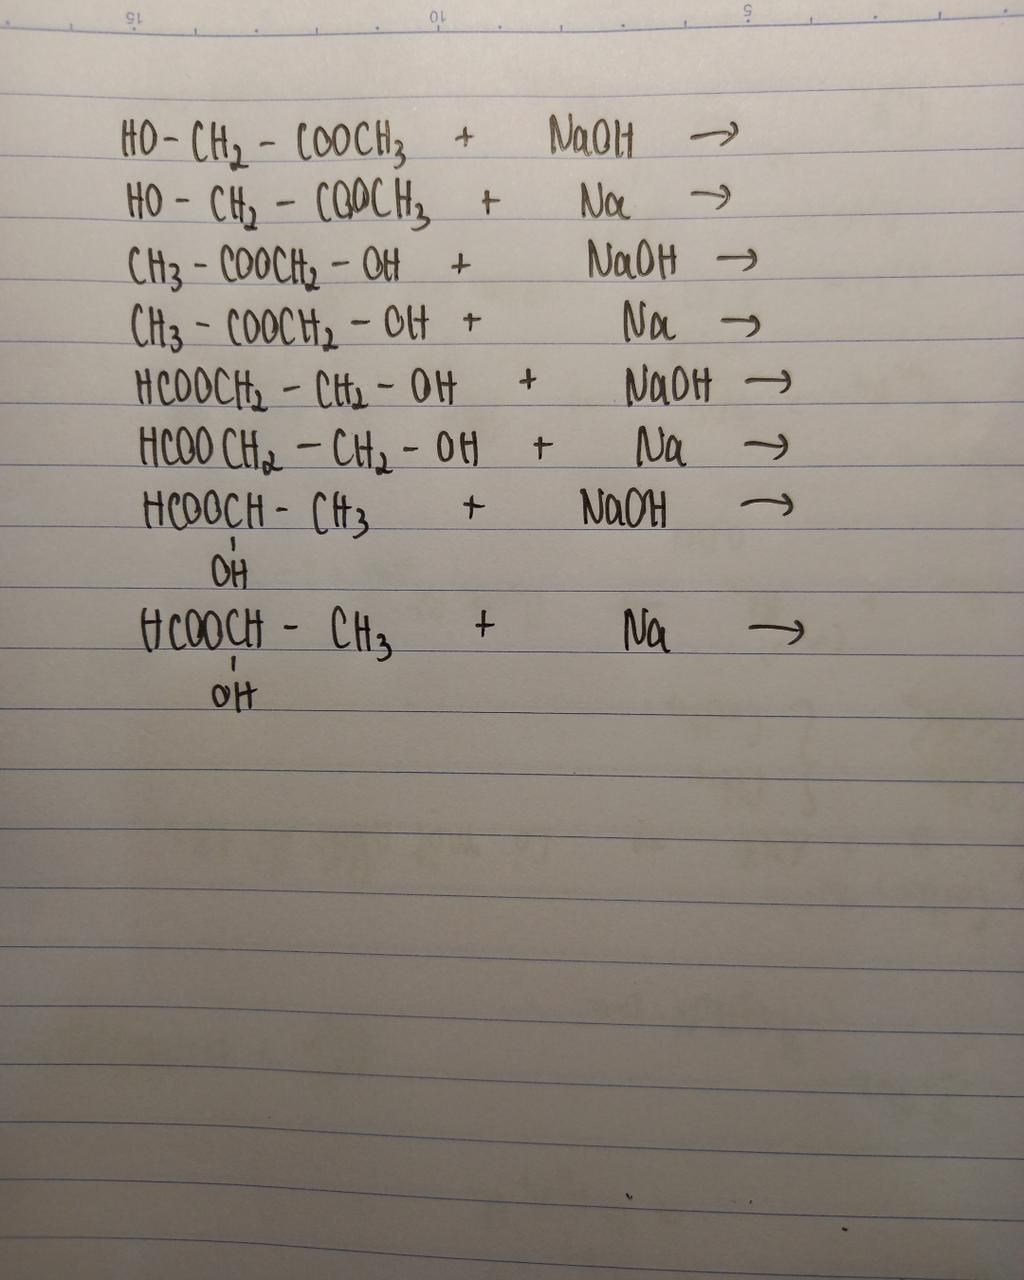 15 10 5
HO - CH₂ - COOCH₃ + NaOH →
HO - CH₂ - COOCH₃ + Na →
CH₃ - COOCH₂ - OH + NaOH →
CH₃ - COOCH₂ - OH + Na →
HCOOCH₂ - CH₂ - OH + NaOH →
HCOOCH₂ - CH₂ - OH + Na →
HCOOCH - CH₃ + NaOH →
OH
HCOOCH - CH₃ + Na →
OH